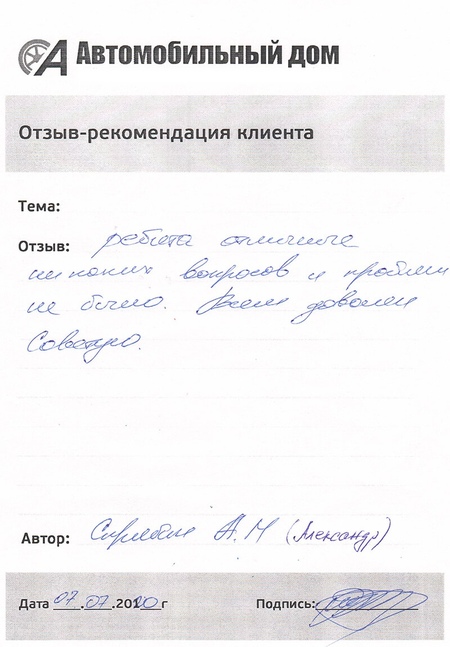 Автомобильный дом
Отзыв-рекомендация клиента
Тема:
Отзыв: ребята отличные
никаких вопросов и проблем
не было. Всем доволен
Советую.
Автор: А.Н (Александр)
Дата 07.07.2010г Подпись: